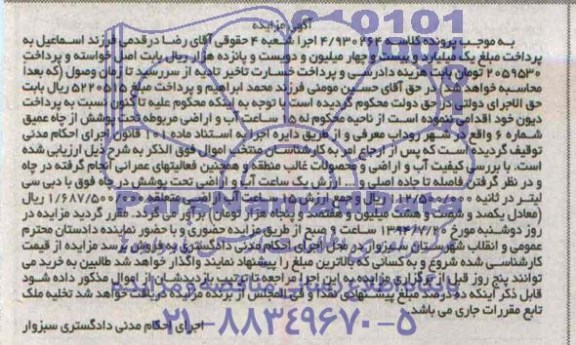 آگهی مزایده
به موجب پرونده کلاسه ۴/۹۳۰۲۶۴ اجرا شعبه ۴ حقوقی آقای رضا درقدمی فرزند اسماعیل به
پرداخت مبلغ یک میلیارد و بیست و چهار میلیون و دویست و پانزده هزار ریال بابت اصل خواسته و پرداخت
۲۰۵۹۵۳۰ تومان بابت هزینه دادرسی و پرداخت خسارت تاخیر تادیه از سررسید تا زمان وصول (که بعدا
محاسبه خواهد شد) در حق آقای حسین مومنی فرزند محمد ابراهیم و پرداخت مبلغ ۵۲۲۰۵۱۵ ریال بابت
حق الاجرای دولتی در حق دولت محکوم گردیده است با توجه به اینکه محکوم علیه تاکنون نسبت به پرداخت
دیون خود اقدامی ننموده است از ناحیه محکوم له ۱۵ ساعت آب و اراضی مربوطه تحت پوشش از چاه عمیق
شماره ۶ واقع در شهر روداب معرفی و از طریق دایره اجرا به استناد ماده ۱۰۱ قانون اجرای احکام مدنی
توقیف گردیده است که پس از ارجاع امر به کارشناسان منتخب اموال فوق الذکر به شرح ذیل ارزیابی شده
است. با بررسی کیفیت آب و اراضی و محصولات غالب منطقه و همچنین فعالیتهای عمرانی انجام گرفته در چاه
و در نظر گرفتن فاصله تا جاده اصلی و... ارزش یک ساعت آب و اراضی تحت پوشش در چاه فوق با دبی سی
لیتر در ثانیه ۱۱۲/۵۰۰/۰۰۰ ریال و جمع ارزش ۱۵ ساعت آب اراضی متعلقه ۱/۶۸۷/۵۰۰/۰۰۰ ریال
(معادل یکصد و شصت و هشت میلیون و هفتصد و پنجاه هزار تومان) برآورد می گردد. مقرر گردید مزایده در
روز دوشنبه مورخ ۱۳۹۴/۷/۲۰ ساعت ۹ صبح از طریق مزایده حضوری و با حضور نماینده دادستان محترم
عمومی و انقلاب شهرستان سبزوار در محل اجرای احکام مدنی دادگستری به فروش برسد مزایده از قیمت
کارشناسی شده شروع و به کسانی که بالاترین مبلغ را پیشنهاد نمایند واگذار خواهد شد طالبین به خرید می
توانند پنج روز قبل از برگزاری مزایده به این اجرا مراجعه تا ترتیب بازدیدشان از اموال مذکور داده شود
قابل ذکر اینکه ده درصد مبلغ پیشنهادی نقدا و فی المجلس از برنده مزایده دریافت خواهد شد تخلیه ملک
تابع مقررات جاری می باشد.
اجرای احکام مدنی دادگستری سبزوار
۰۲۱-۸۸۳۴۹۶۷۰-۵